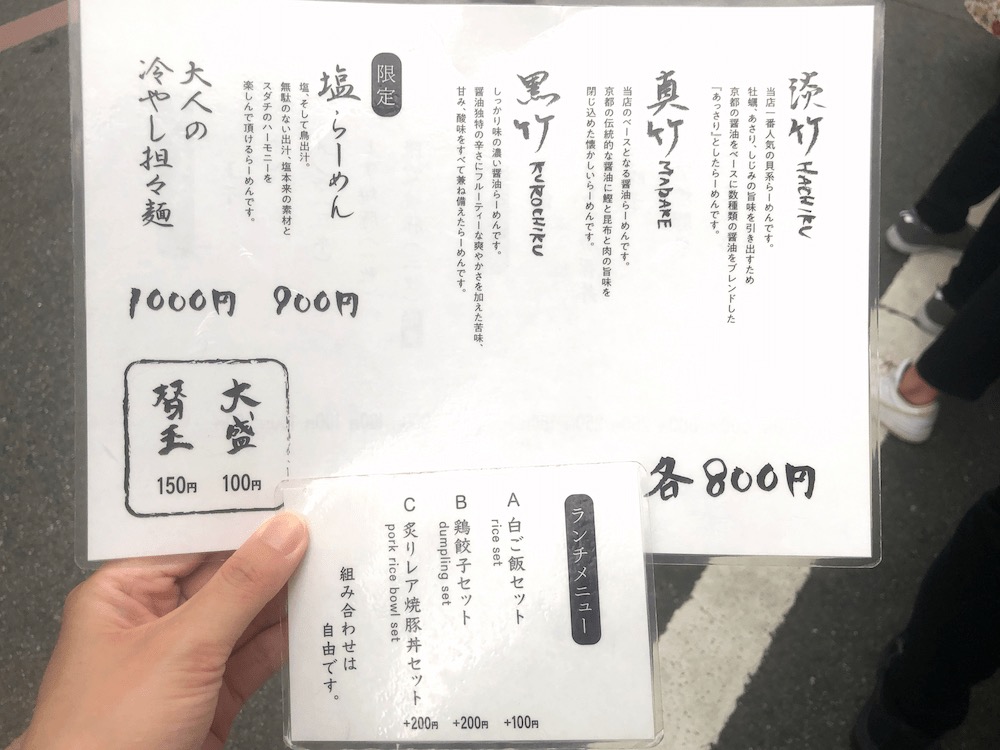 淡竹 HACHIKU
当店一番人気の貝系らーめんです。
牡蠣、あさり、しじみの旨味を引き出すため
京都の醤油をベースに数種類の醤油をブレンドした
『あっさり』としたらーめんです。
真竹 MADAKE
当店のベースとなる醤油らーめんです。
京都の伝統的な醤油に鰹と昆布と肉の旨味を
閉じ込めた懐かしいらーめんです。
黒竹 KUROCHIKU
しっかり味の濃い醤油らーめんです。
醤油独特の辛さにフルーティーな爽やかさを加えた苦味、
甘み、酸味をすべて兼ね備えたらーめんです。
各800円
限定
塩らーめん
塩、そして鳥出汁。
無駄のない出汁、塩本来の素材と
スダチのハーモニーを
楽しんで頂けるらーめんです。
900円
大人の
冷やし担々麺
1000円
大盛
100円
替玉
150円
ランチメニュー
A 白ご飯セット
rice set
+100円
B 鶏餃子セット
dumpling set
+200円
C 炙りレア焼豚丼セット
pork rice bowl set
+200円
組み合わせは
自由です。